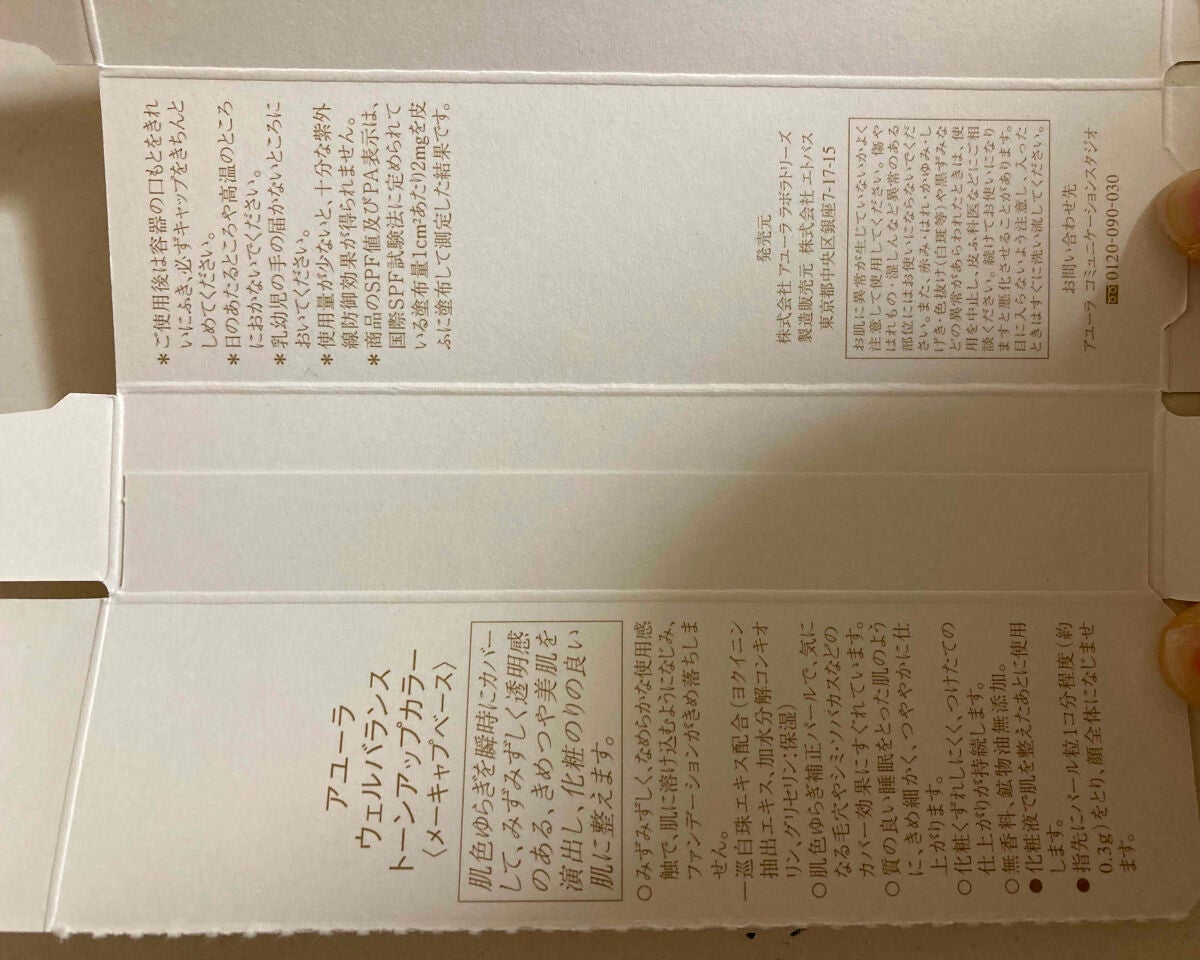 アユーラ
ウェルバランス
トーンアップカラー
〈メーキャップベース〉
肌色ゆらぎを瞬時にカバー
して、みずみずしく透明感
のある、きめつや美肌を
演出し、化粧のりの良い
肌に整えます。
○みずみずしく、なめらかな使用感
触で、肌に溶け込むようになじみ、
ファンデーションがきめ落ちしま
せん。
―巡白珠エキス配合(ヨクイニン
抽出エキス、加水分解コンキオ
リン、グリセリン:保湿)
○肌色ゆらぎ補正パールで、気に
なる毛穴やシミ・ソバカスなどの
カバー効果にすぐれています。
○質の良い睡眠をとった肌のよう
に、きめ細かく、つややかに仕
上がります。
○化粧くずれしにくく、つけたての
仕上がりが持続します。
○無香料、鉱物油無添加。
●化粧液で肌を整えたあとに使用
します。
●指先にパール粒1コ分程度(約
0.3g)をとり、顔全体になじませ
ます。
＊ご使用後は容器の口もとをきれ
いにふき、必ずキャップをきちんと
しめてください。
＊日のあたるところや高温のところ
におかないでください。
＊乳幼児の手の届かないところに
おいてください。
＊使用量が少ないと、十分な紫外
線防御効果が得られません。
＊商品のSPF値及びPA表示は、
国際SPF試験法に定められて
いる塗布量1cm²あたり2mgを皮
ふに塗布して測定した結果です。
発売元
株式会社 アユーラ ラボラトリーズ
製造販売元 株式会社 エトバス
東京都中央区銀座7-17-15
お肌に異常が生じていないかよく
注意して使用してください。傷や
はれもの・湿しんなど異常のある
部位にはお使いにならないでくだ
さい。また、赤み・はれ・かゆみ・し
げき・色抜け(白斑等)や黒ずみな
どの異常があらわれたときは、使
用を中止し、皮ふ科医などにご相
談ください。続けてお使いになり
ますと悪化させることがあります。
目に入らないよう注意し、入った
ときはすぐに洗い流してください。
お問い合わせ先
アユーラ コミュニケーションスタジオ
0120-090-030